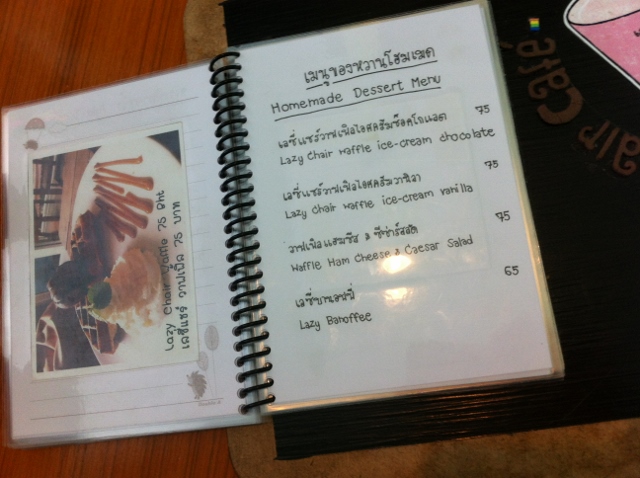 Lazy Chair Waffle 75 Bht
เลซี่แชร์ วาฟเฟิ้ล 75 บาท
เมนูของหวานโฮมเมด
Homemade Dessert Menu
เลซี่แชร์วาฟเฟิลไอศครีมช็อคโกแลต 75
Lazy Chair Waffle ice-cream chocolate
เลซี่แชร์วาฟเฟิลไอศครีมวานิลา 75
Lazy Chair Waffle ice-cream vanilla
วาฟเฟิลแฮมชีส & ซีซ่าร์สลัด 75
Waffle Ham Cheese & Caesar Salad
เลซี่บานอฟฟี่ 65
Lazy Banoffee
air
café